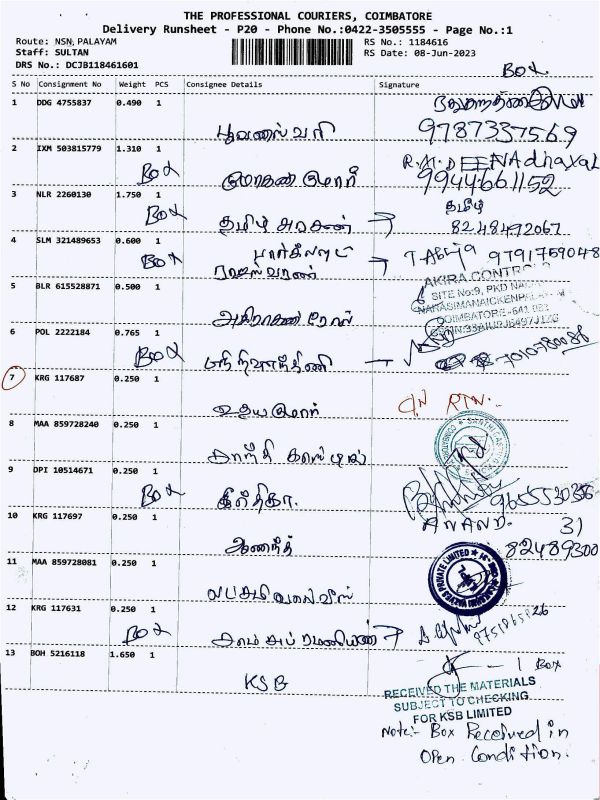 THE PROFESSIONAL COURIERS, COIMBATORE
Delivery Runsheet - P20 - Phone No.:0422-3505555 - Page No.:1
Route: NSN, PALAYAM RS No.: 1184616
Staff: SULTAN RS Date: 08-Jun-2023
DRS No.: DCJB118461601
Box
S No Consignment No Weight PCS Consignee Details Signature
1 DDG 4755837 0.490 1
புவனேஸ்வரி 9787337569
2 IXM 503815779 1.310 1 R.M.DEENAdhayal
Box மோகனகுமார் 9944661152
3 NLR 2260130 1.750 1 தமிழ்
Box தமிழ் அரசன் 8248492067
4 SLM 321489653 0.600 1 9791759048
Box ராஜேஸ்வரன்
5 BLR 615528871 0.500 1 AKIRA CONTROLS
SITE No:9, PKD NAGAR
NARASIMANAICKENPALAYAM
COIMBATORE-641 031
6 POL 2222184 0.765 1
Box 7010780086
7 KRG 117687 0.250 1
உதயகுமார் C/N RTN.
8 MAA 859728240 0.250 1
9 DPI 10514671 0.250 1
Box கீர்த்திகா.
ANAND.
10 KRG 117697 0.250 1 31
ஆனந்த் 82489300
11 MAA 859728081 0.250 1 PRIVATE LIMITED
12 KRG 117631 0.250 1
Box
13 BOH 5216118 1.650 1 - 1 Box
KSB
RECEIVED THE MATERIALS
SUBJECT TO CHECKING
FOR KSB LIMITED
Note:- Box Received in
Open Condition.